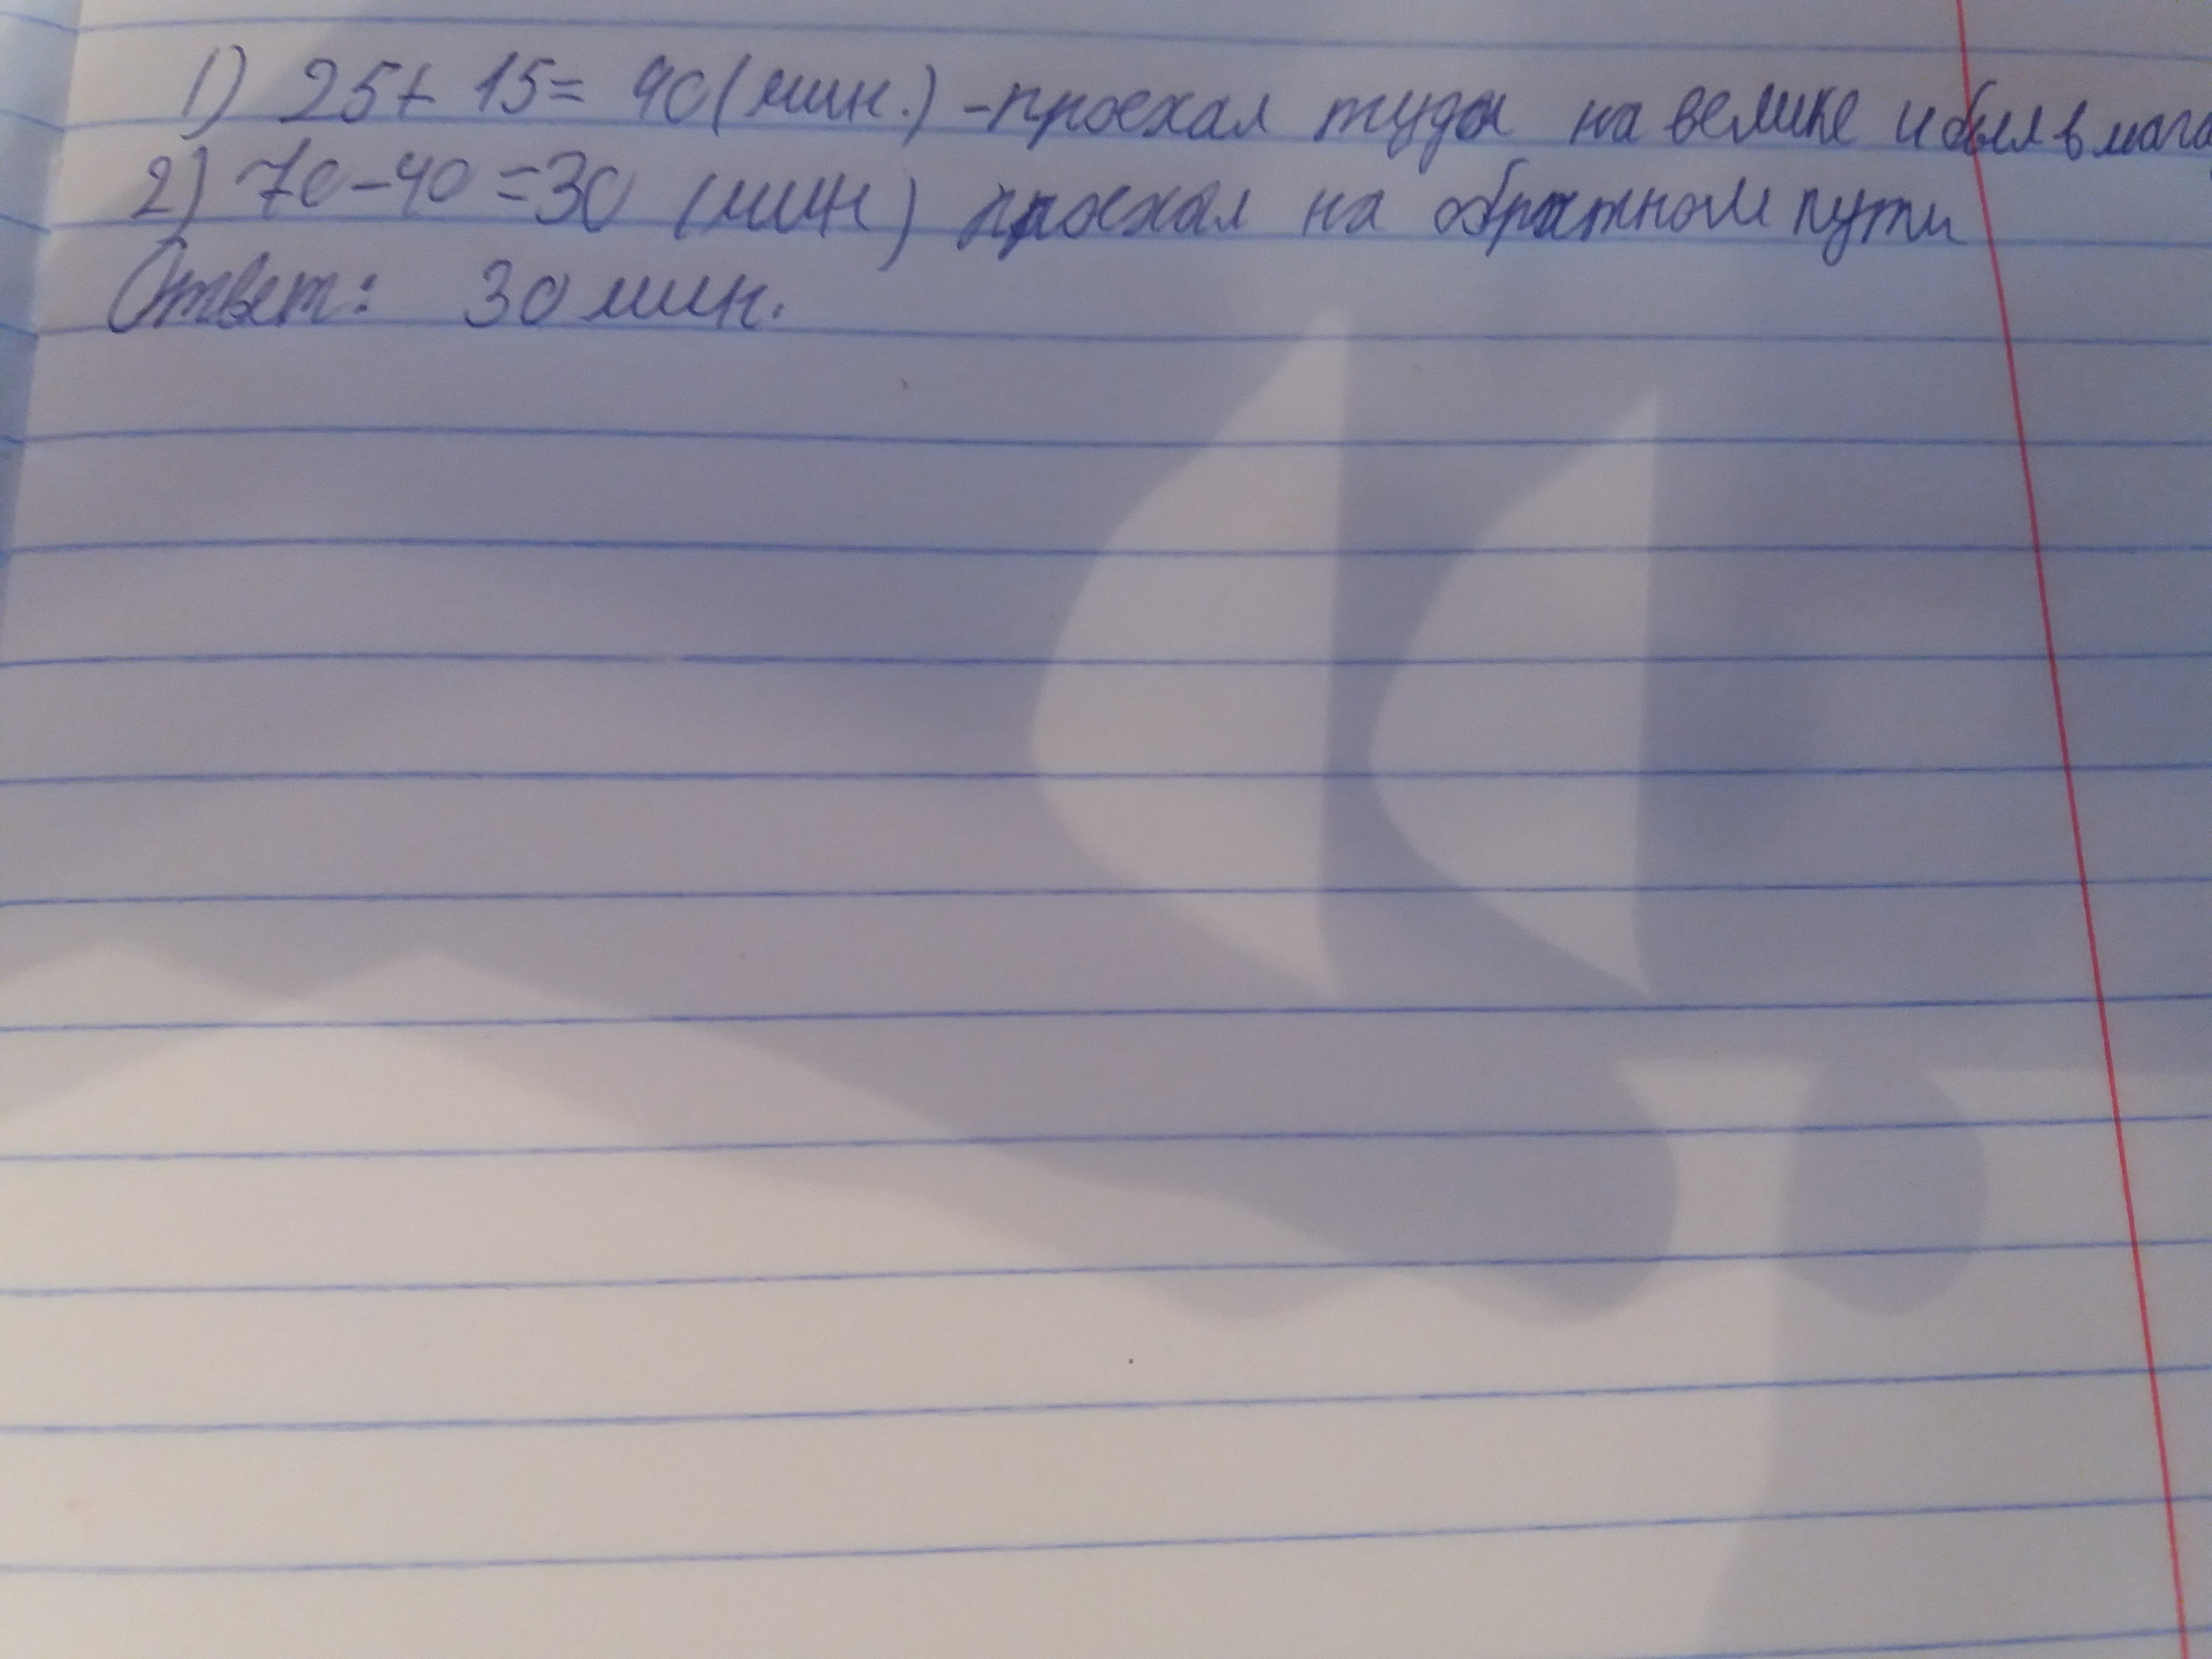 1) 25+ 15= 40 (мин.) - проехал туда на велике и был в мага
2) 70-40 =30 (мин) проехал на обратном пути
Ответ: 30 мин.